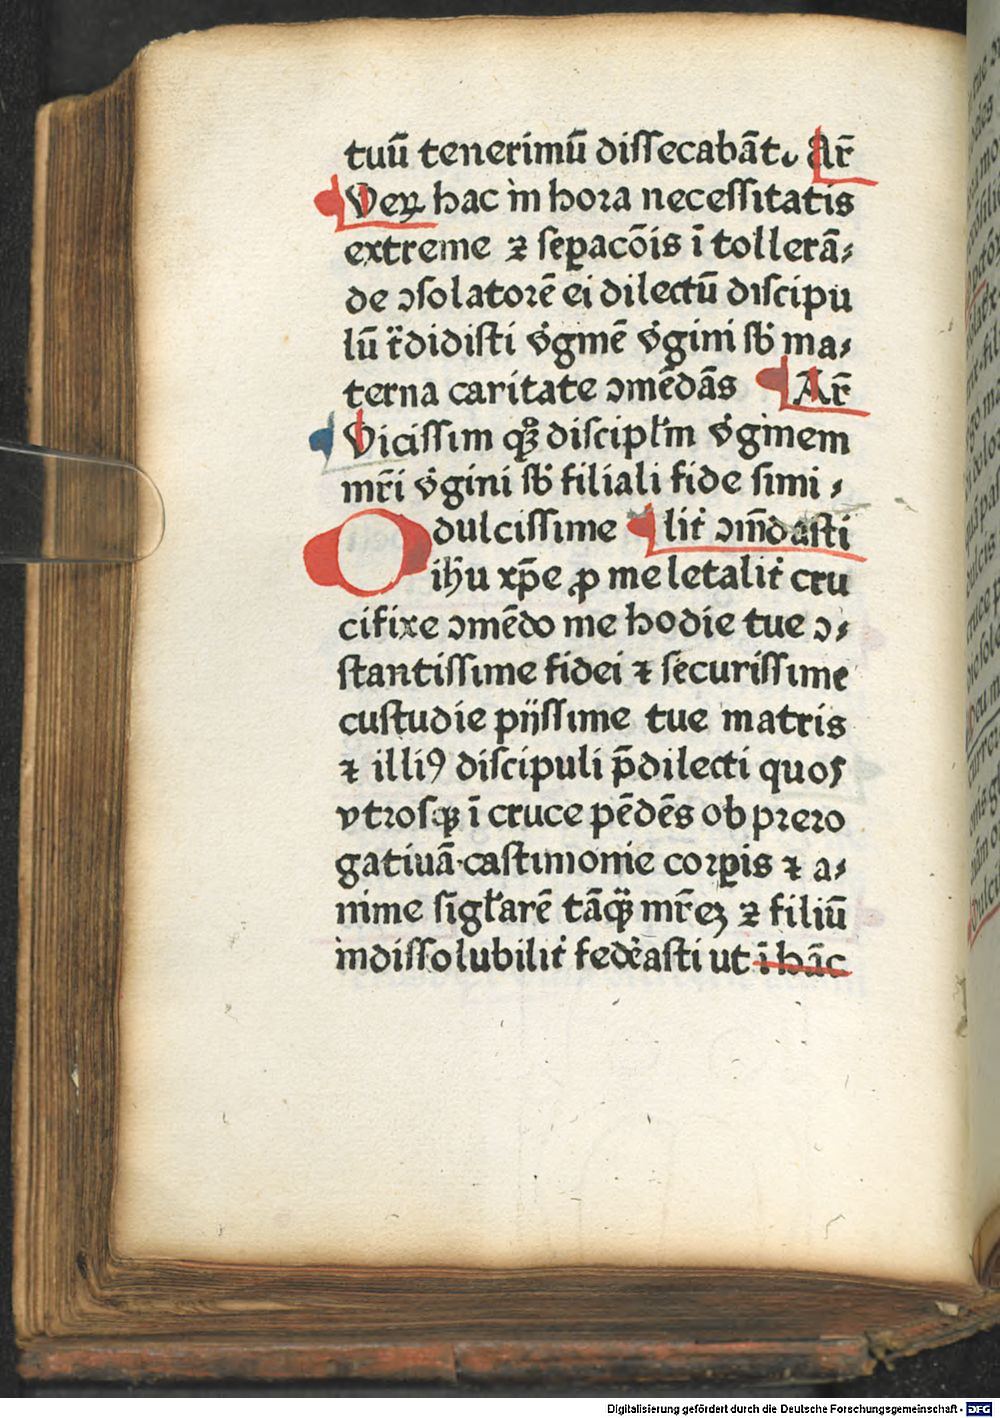 tuū tenerimū diſſecabāt. Ar̄
Veꝝ hac in hora neceſſitatis
extreme ⁊ ſeꝑacōis ī tollerā⸗
de ↄſolatorē ei dilectū diſcipu
lū tͬdidiſti v̇gīnē v̇gini ſb̾ ma⸗
terna caritate ↄmēdās Ar̄
Viciſſim qꝫ diſcipl̄m v̇ginem
mr̄i v̇gini ſb̾ filiali fide ſimi⸗
O dulciſſime lit̾ ↄm̄daſti
ihū xp̄e ꝓ me letalit̾ cru
cifixe ↄmēdo me hodie tue ↄ⸗
ſtantiſſime fidei ⁊ ſecuriſſime
cuſtudie pijſſime tue matris
⁊ illiꝰ diſcipuli p̄dilecti quos
vtroſqꝫ ī cruce pēdēs ob prero
gatiuā caſtimonie corꝑis ⁊ a⸗
nime ſigl̄arē tāqꝫ mr̄eꝫ ⁊ filiū
indiſſolubilit̾ fed̾aſti ut ī hāc
Digitalisierung gefördert durch die Deutsche Forschungsgemeinschaft - DFG